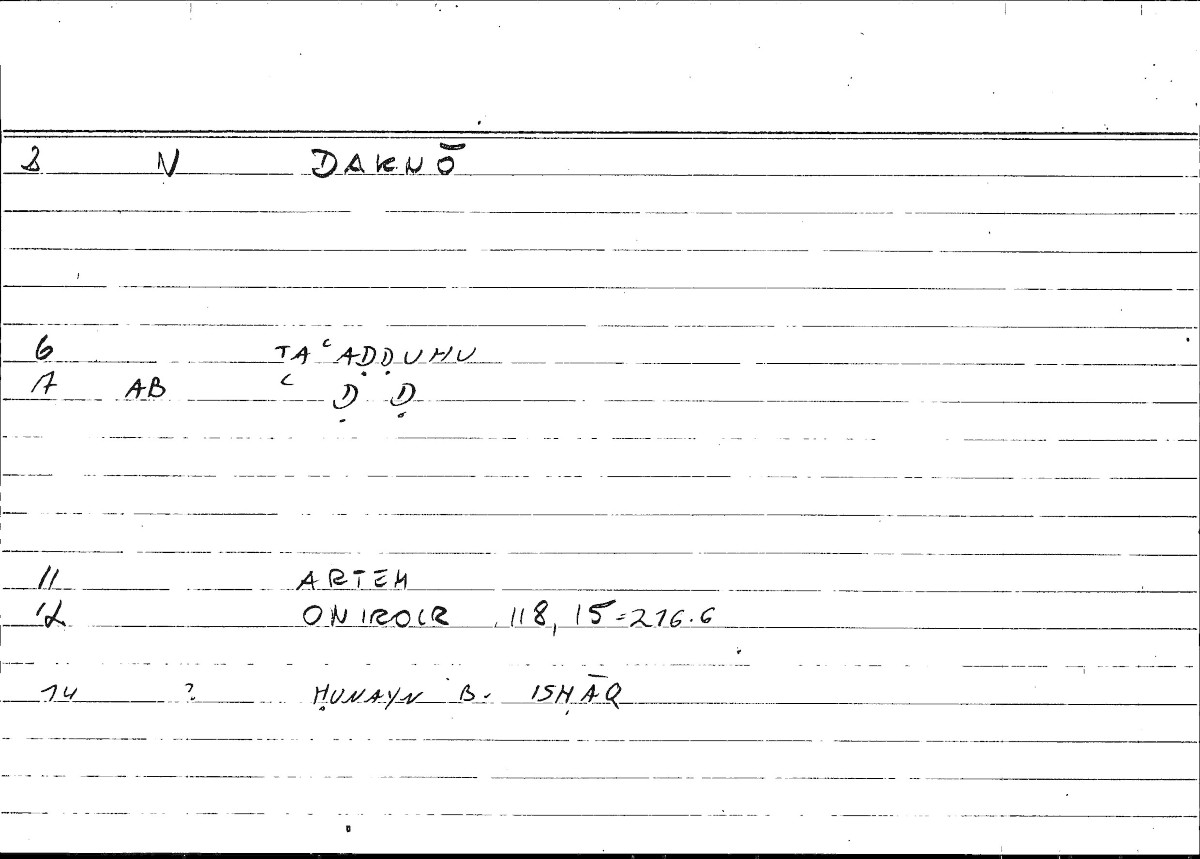 3 N DAKNŌ
6 TAʿAḌḌUHU
7 AB ʿ Ḍ Ḍ
11 ARTEM
12 ONIROCR 118, 15=216.6
14 ? ḤUNAYN B. ISḤĀQ